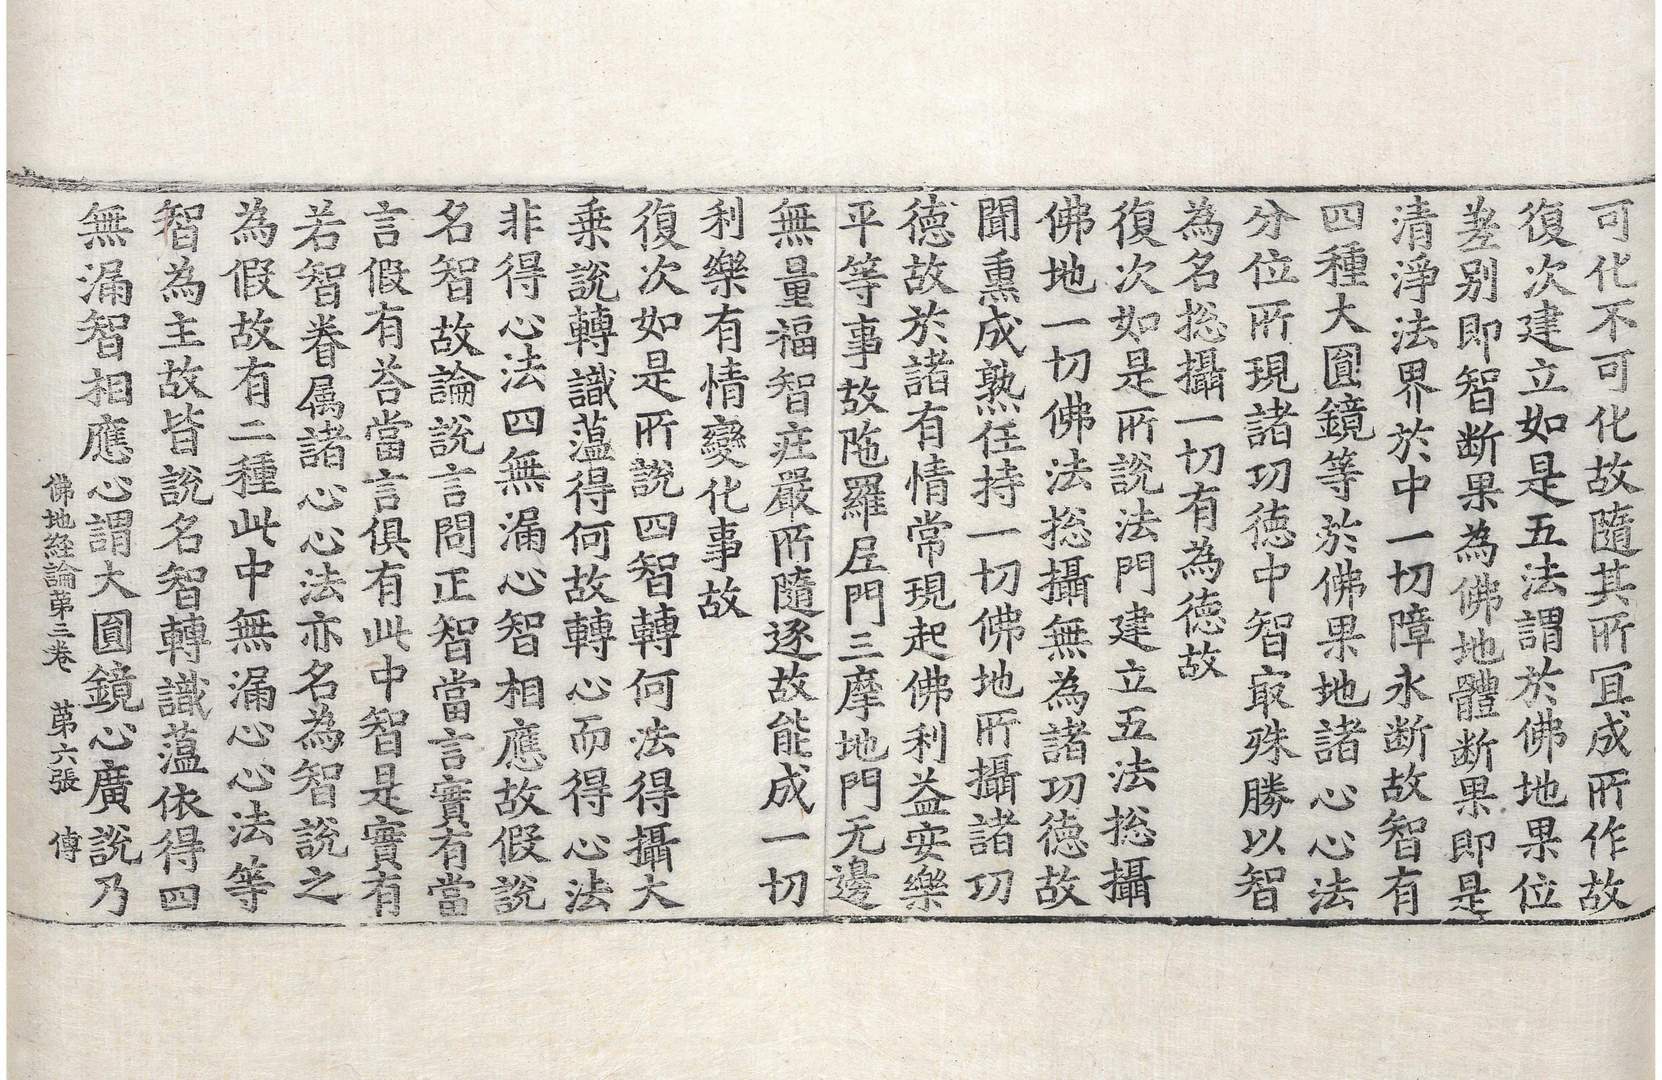 可化不可化故隨其所冝成所作故
復次建立如是五法謂於佛地果位
差别即智断果為佛地體断果即是
清淨法界於中一切障永断故智有
四種大圎鏡等於佛果地諸心心法
分位所現諸功德中智寂殊勝以智
為名捴攝一切有為德故
復次如是所說法門建立五法捴攝
佛地一切佛法捴攝無為諸功德故
聞熏成熟任持一切佛地所攝諸功
德故於諸有情常現起佛利益安樂
平等事故陁羅尼門三摩地門无邊
無量福智㽵嚴所隨逐故能成一切
利樂有情變化事故
復次如是所說四智轉何法得攝大
乗說轉識薀得何故轉心而得心法
非得心法四無漏心智相應故假說
名智故論說言問正智當言實有當
言假有荅當言俱有此中智是實有
若智眷属諸心心法亦名為智說之
為假故有二種此中無漏心心法等
智為主故皆說名智轉識薀依得四
無漏智相應心謂大圎鏡心廣說乃
佛地経論苐三卷 苐六張 傳